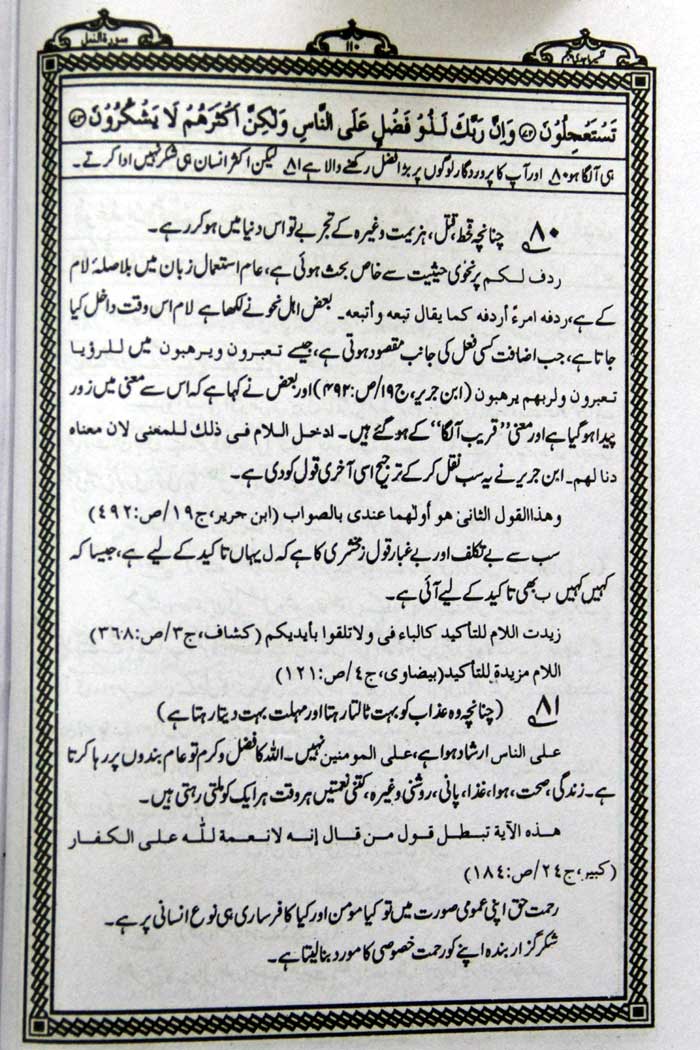 سورۃ النمل
۱۱۰
تَسْتَعْجِلُوْنَ ﴿۷۲﴾ وَاِنَّ رَبَّكَ لَذُوْ فَضْلٍ عَلَى النَّاسِ وَلٰكِنَّ اَكْثَرَهُمْ لَا يَشْكُرُوْنَ ﴿۷۳﴾
ہی آلگا ہو ۸۰ اور آپ کا پروردگار لوگوں پر بڑا فضل رکھنے والا ہے ۸۱ لیکن اکثر انسان ہی شکر نہیں ادا کرتے۔
۸۰ چنانچہ قحط، قتل، ہزیمت وغیرہ کے تجربے تو اس دنیا میں ہو کر رہے۔
ردف لکم پر نحوی حیثیت سے خاص بحث ہوئی ہے، عام استعمال زبان میں بلا صلۂ لام
کے ہے، ردفه امرءً أردفه كما يقال تبعه وأتبعه۔ بعض اہل نحو نے لکھا ہے لام اس وقت داخل کیا
جاتا ہے، جب اضافت کسی فعل کی جانب مقصود ہوتی ہے، جیسے تعبرون ویرهبون میں للرؤیا
تعبرون ولربهم یرهبون (ابن جریر، ج۱۹/ص:۴۹۲) اور بعض نے کہا ہے کہ اس سے معنی میں زور
پیدا ہو گیا ہے اور معنی ”قریب آلگا“ کے ہو گئے ہیں۔ ادخل اللام فی ذلك للمعنی لان معناه
دنا لهم۔ ابن جریر نے یہ سب نقل کر کے ترجیح اسی آخری قول کو دی ہے۔
وهذا القول الثانی هو أولهما عندی بالصواب (ابن جریر، ج۱۹/ص:۴۹۲)
سب سے بے تکلف اور بے غبار قول زمخشری کا ہے کہ ل یہاں تاکید کے لیے ہے، جیسا کہ
کہیں کہیں ب بھی تاکید کے لیے آئی ہے۔
زيدت اللام للتأكيد كالباء فی ولا تلقوا بأيديكم (كشاف، ج۳/ص:۳۶۸)
اللام مزيدة للتأكيد (بيضاوی، ج٤/ص:۱۲۱)
۸۱ (چنانچہ وہ عذاب کو بہت ٹالتا رہتا اور مہلت بہت دیتا رہتا ہے)
علی الناس ارشاد ہوا ہے، علی المومنین نہیں۔ اللہ کا فضل و کرم تو عام بندوں پر رہا کرتا
ہے۔ زندگی، صحت، ہوا، غذا، پانی، روشنی وغیرہ، کتنی نعمتیں ہر وقت ہر ایک کو ملتی رہتی ہیں۔
هذه الآية تبطل قول من قال إنه لا نعمة لله على الكفار
(كبير، ج۲٤/ص:۱۸٤)
رحمت حق اپنی عمومی صورت میں تو کیا مومن اور کیا کافر ساری ہی نوع انسانی پر ہے۔
شکر گزار بندہ اپنے کو رحمت خصوصی کا مورد بنا لیتا ہے۔